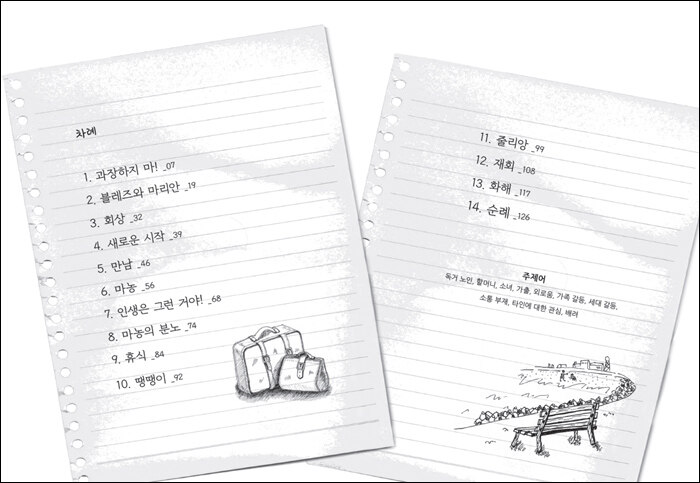 차례
1. 과장하지 마! _07
2. 블레즈와 마리안 _19
3. 회상 _32
4. 새로운 시작 _39
5. 만남 _46
6. 마농 _56
7. 인생은 그런 거야! _68
8. 마농의 분노 _74
9. 휴식 _84
10. 땡땡이 _92
11. 줄리앙 _99
12. 재회 _108
13. 화해 _117
14. 순례 _126
주제어
독거 노인, 할머니, 소녀, 가출, 외로움, 가족 갈등, 세대 갈등,
소통 부재, 타인에 대한 관심, 배려